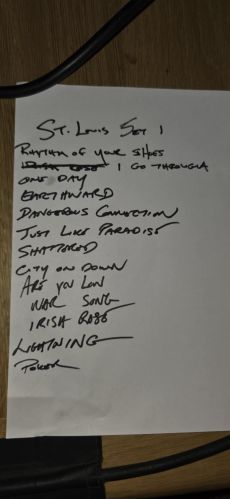 St. Louis Set 1
Rhythm of your Shoes
I go through
one day
Earthward
Dangerous Connection
Just Like Paradise
Shattered
City on Down
Are you Low
War Song
Irish Rose
Lightning
Poker